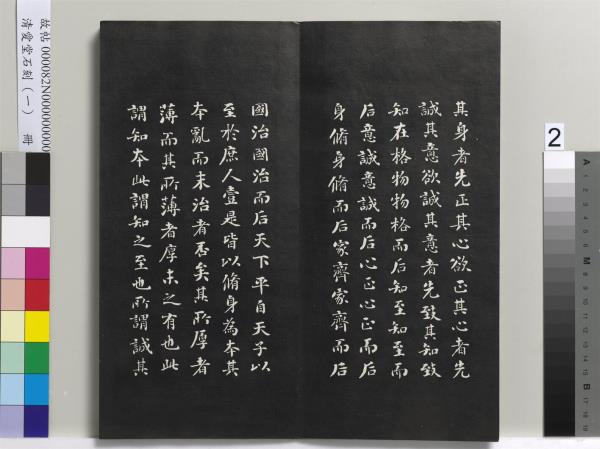 其身者先正其心欲正其心者先
誠其意欲誠其意者先致其知致
知在格物物格而后知至知至而
后意誠意誠而后心正心正而后
身脩身脩而后家齊家齊而后
國治國治而后天下平自天子以
至於庶人壹是皆以脩身為本其
本亂而末治者否矣其所厚者
薄而其所薄者厚未之有也此
謂知本此謂知之至也所謂誠其
故帖 000082N000000000
清愛堂石刻（一） 冊
2
A
M
B